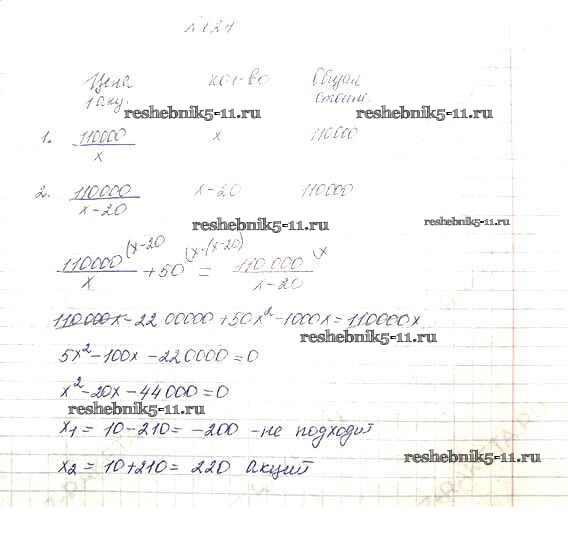 № 1.21
Цена кол-во Общая
1 акц. стоим.
reshebnik5-11.ru reshebnik5-11.ru
1. 110000/x x 110000
2. 110000/x-20 x-20 110000
reshebnik5-11.ru reshebnik5-11.ru
110000/x (x-20 + 50 (x·(x-20) = 110 000/x-20 (x
110000x - 22 00000 + 50x² - 1000x = 110000x
reshebnik5-11.ru
5x² - 100x - 220000 = 0
x² - 20x - 44000 = 0
reshebnik5-11.ru
x₁ = 10 - 210 = -200 - не подходит
reshebnik5-11.ru
x₂ = 10 + 210 = 220 акций